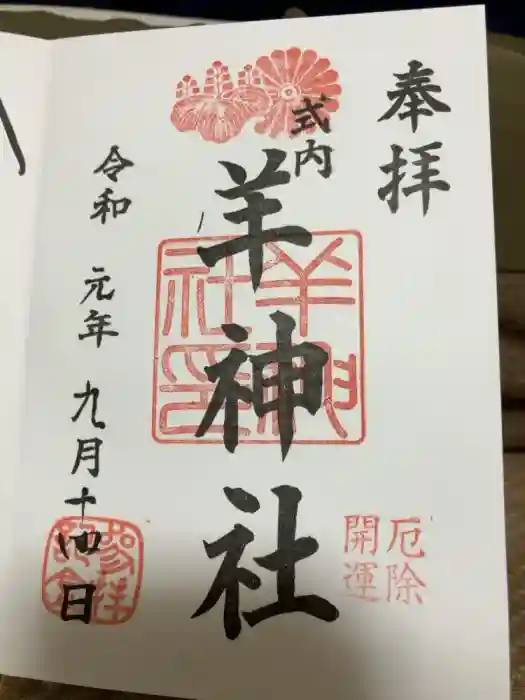 奉拝
式内
羊神社
羊神社印
厄除
開運
令和 元年 九月十四日